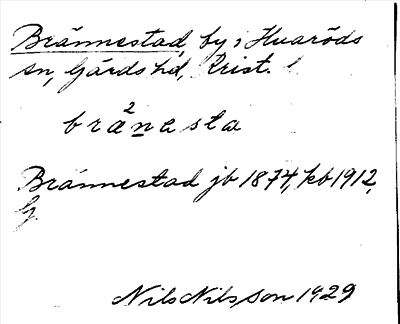 Brännestad, by i Huaröds
sn, Gärds hd, Krist. l
bränesta
Brännestad jb 1874, kb 1912,
G.
Nils Nilsson 1929